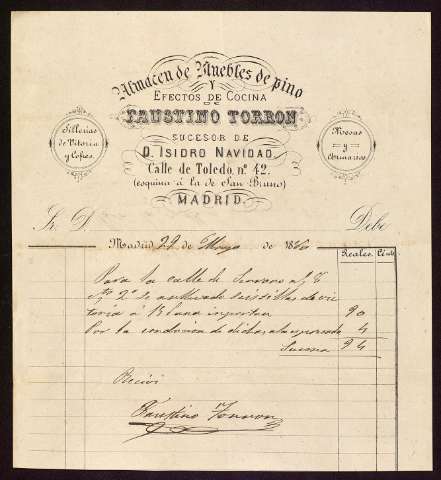 Almacen de Muebles de pino
Y
EFECTOS DE COCINA
DE
FAUSTINO TORRON
SUCESOR DE
D. ISIDRO NAVIDAD
Calle de Toledo, nº 42.
(esquina á la de San Bruno)
MADRID.
Sillerias
de Vitoria
y Cofres.
Mesas
y
Armarios
Sr. D.
Debe
Madrid 22 de Mayo de 186
Reales. Cénts
Para la calle de Serrano
Nº 2º se
á 15 una importan 90
Por la conducion de dichas 4
Suma 94
Recivi
Faustino Torron